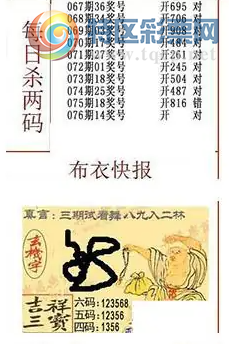 每日杀两码
067期36奖号 开695 对
068期34奖号 开706 对
069期03奖号 开908 对
070期17奖号 开484 对
071期27奖号 开261 对
072期01奖号 开245 对
073期18奖号 开504 对
074期25奖号 开487 对
075期18奖号 开816 错
076期14奖号 开 对
布衣快报
真言：三期试看舞八九入二林
玄機字
吉祥三寶
六码：123568
五码：12356
四码：1356